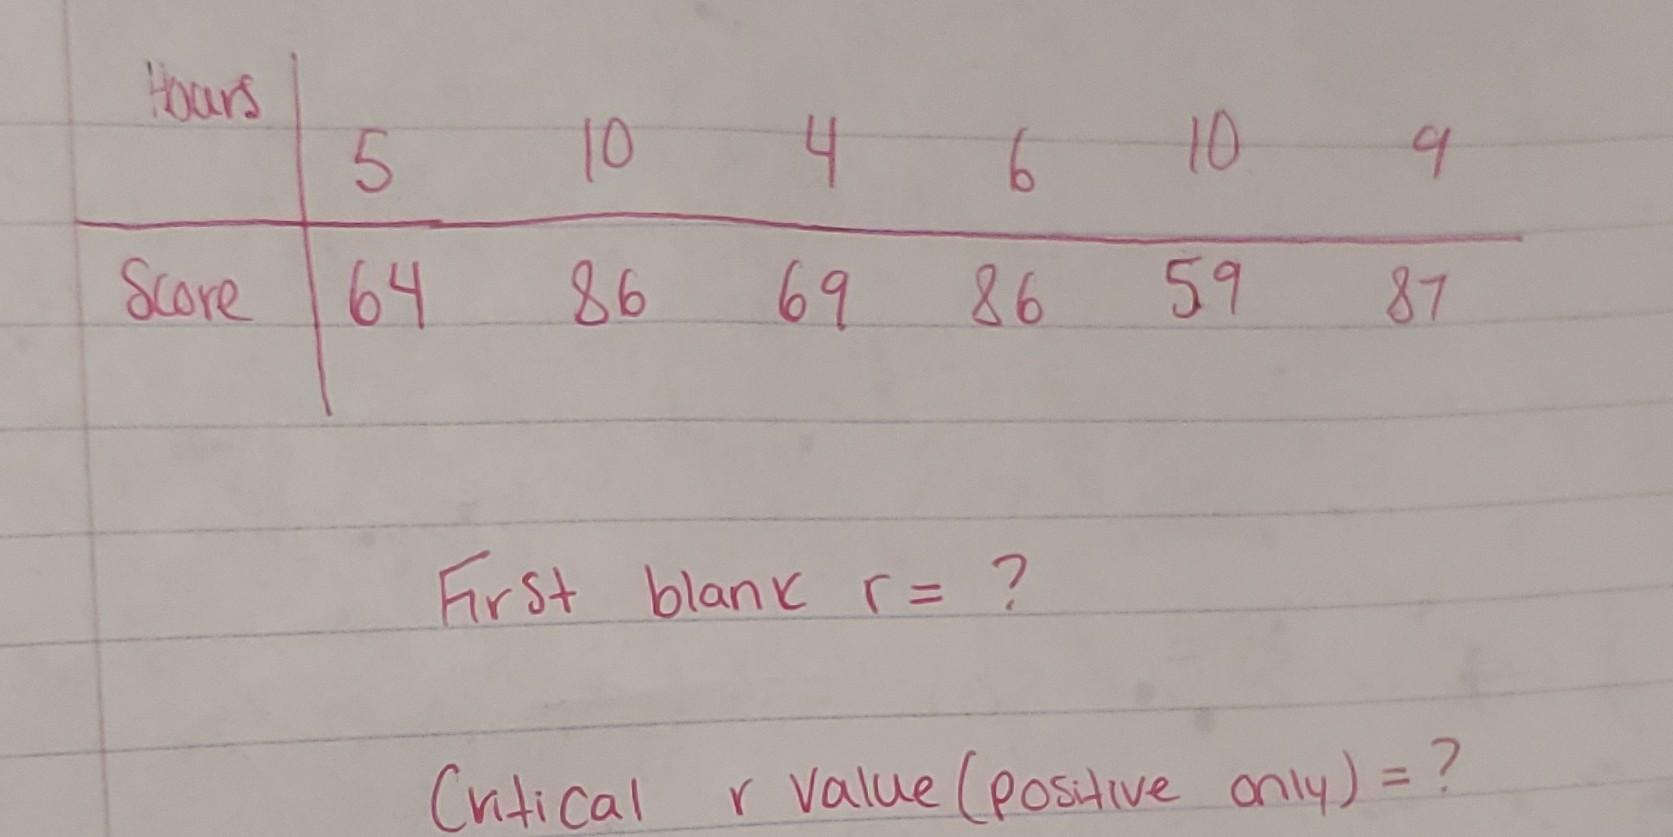 Hours
5 10 4 6 10 9
Score 64 86 69 86 59 87
First blank r = ?
Critical r value (positive only) = ?